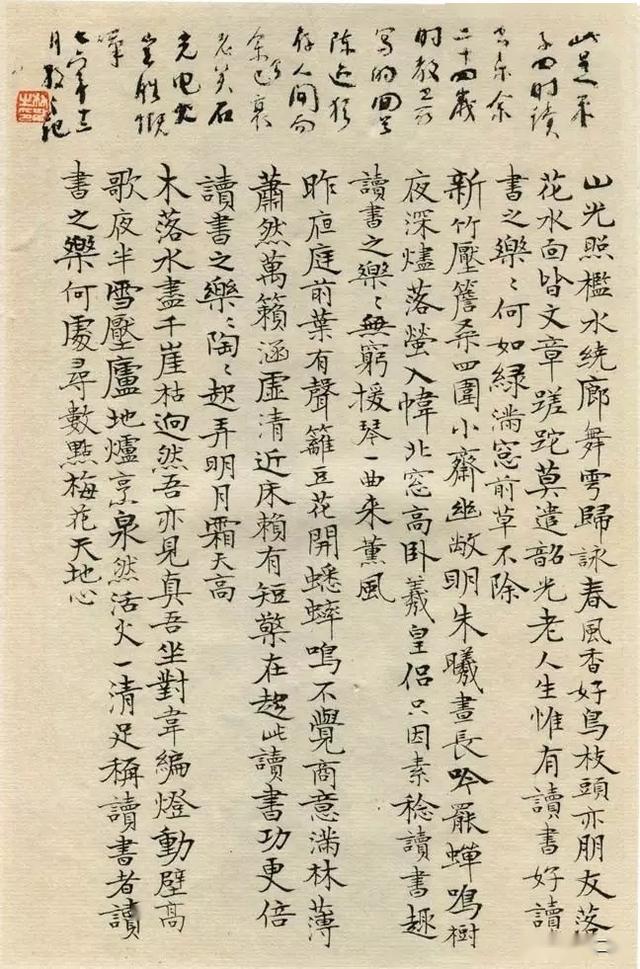 山光照檻水繞廊舞雩歸詠春風香好鳥枝頭亦朋友落
花水面皆文章蹉跎莫遣韶光老人生惟有讀書好讀
書之樂〻何如緑滿窓前草不除
新竹壓簷桑四圍小齋幽敞明朱曦晝長吟罷蟬鳴樹
夜深燼落螢入幃北窓高卧羲皇侶只因素稔讀書趣
讀書之樂〻無窮援琴一曲来薰風
昨夜庭前葉有聲籬豆花開蟋蟀鳴不覺商意滿林薄
蕭然萬籟涵虛清近床賴有短檠在趂此讀書功更倍
讀書之樂〻陶〻起弄明月霜天高
木落水盡千崖枯迥然吾亦見真吾坐對韋編燈動壁高
歌夜半雪壓廬地爐烹泉然活火一清足稱讀書者讀
書之樂何處尋數點梅花天地心
此是朱
子四时读
书乐余
二十四歲
时教
写的回首
陈迹犹
存人间而
余已衰
老矣石
光电火
岂胜慨
嘆
七六年十二
月
记